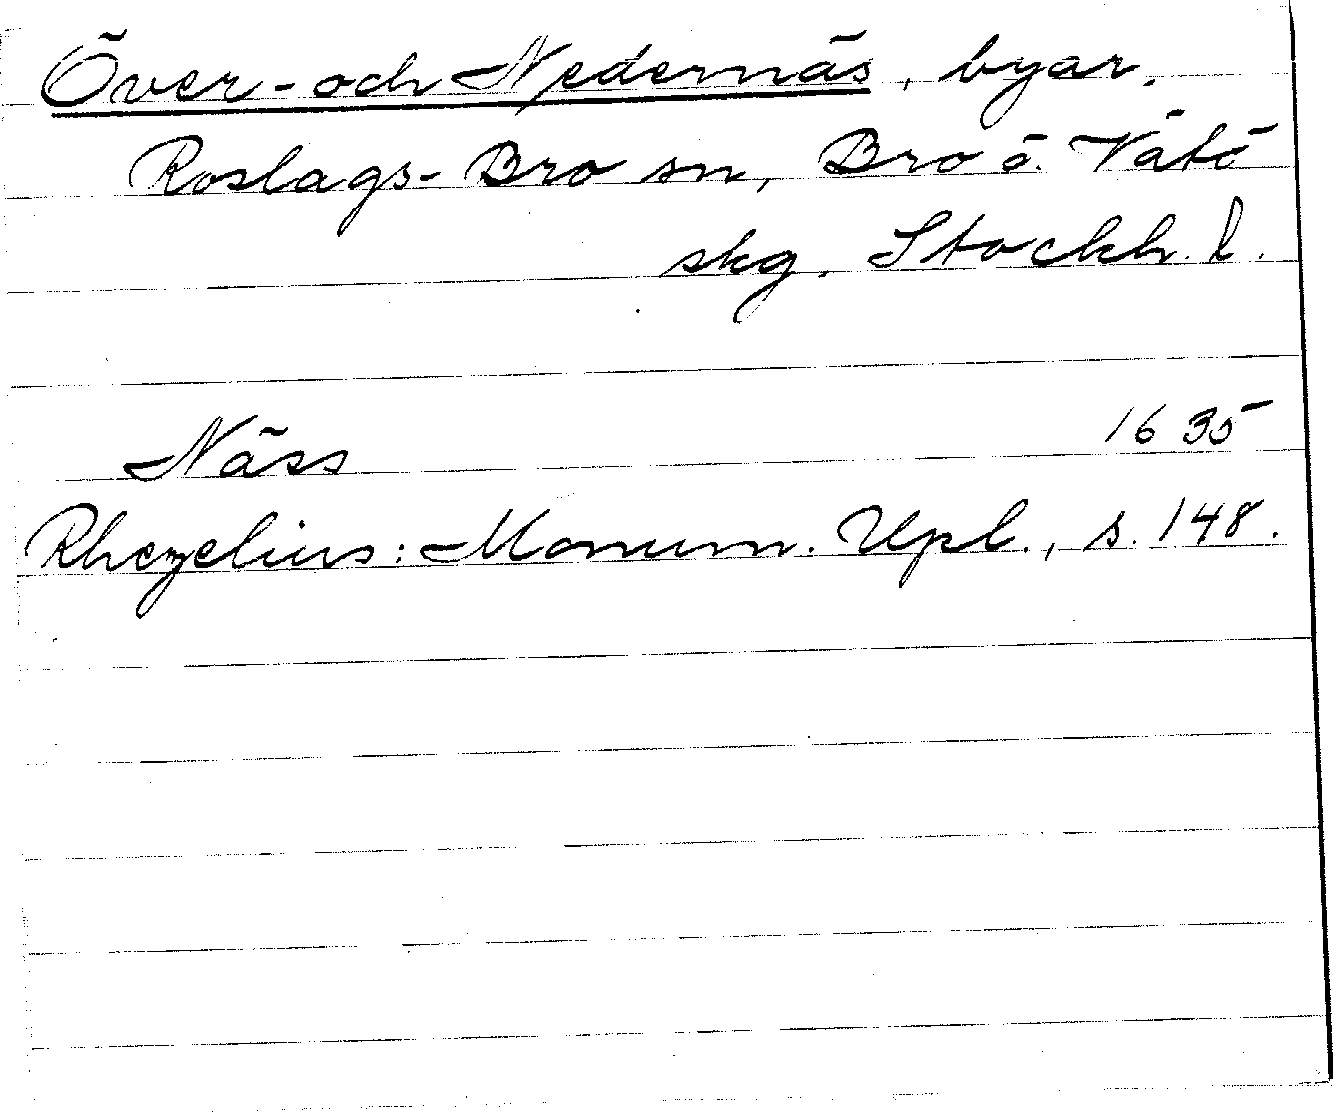 Över- och Nedernäs, byar.
Roslags-Bro sn, Bro ö. Vätö
skg. Stockh. l.
Näss 1635
Rhezelius: Monum. Upl., s. 148.